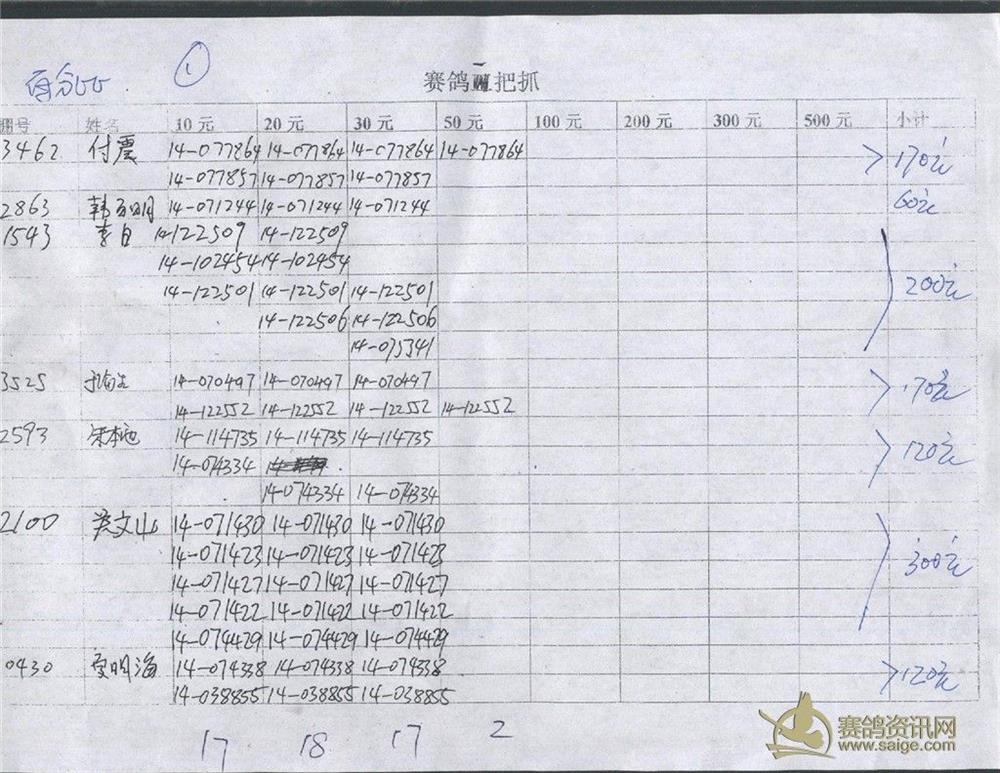 百分55 ①
赛鸽 把抓
棚号 姓名 10元 20元 30元 50元 100元 200元 300元 500元 小计
3462 付震 14-077864 14-077864 14-077864 14-077864 170元
14-077857 14-077857 14-077857
2863 韩 明 14-071244 14-071244 14-071244 60元
1543 李白 14-122509 14-122509
14-102454 14-102454
14-122501 14-122501 14-122501 200元
14-122506 14-122506
14-075341
3525 14-070497 14-070497 14-070497 170元
14-122552 14-122552 14-122552 14-122552
2593 14-114735 14-114735 14-114735 120元
14-074334
14-074334 14-074334
2100 文山 14-071430 14-071430 14-071430
14-071423 14-071423 14-071423 300元
14-071427 14-071427 14-071427
14-071422 14-071422 14-071422
14-074429 14-074429 14-074429
0430 明海 14-074338 14-074338 14-074338 120元
14-038855 14-038855 14-038855
17 18 17 2
赛鸽资讯网
www.saige.com